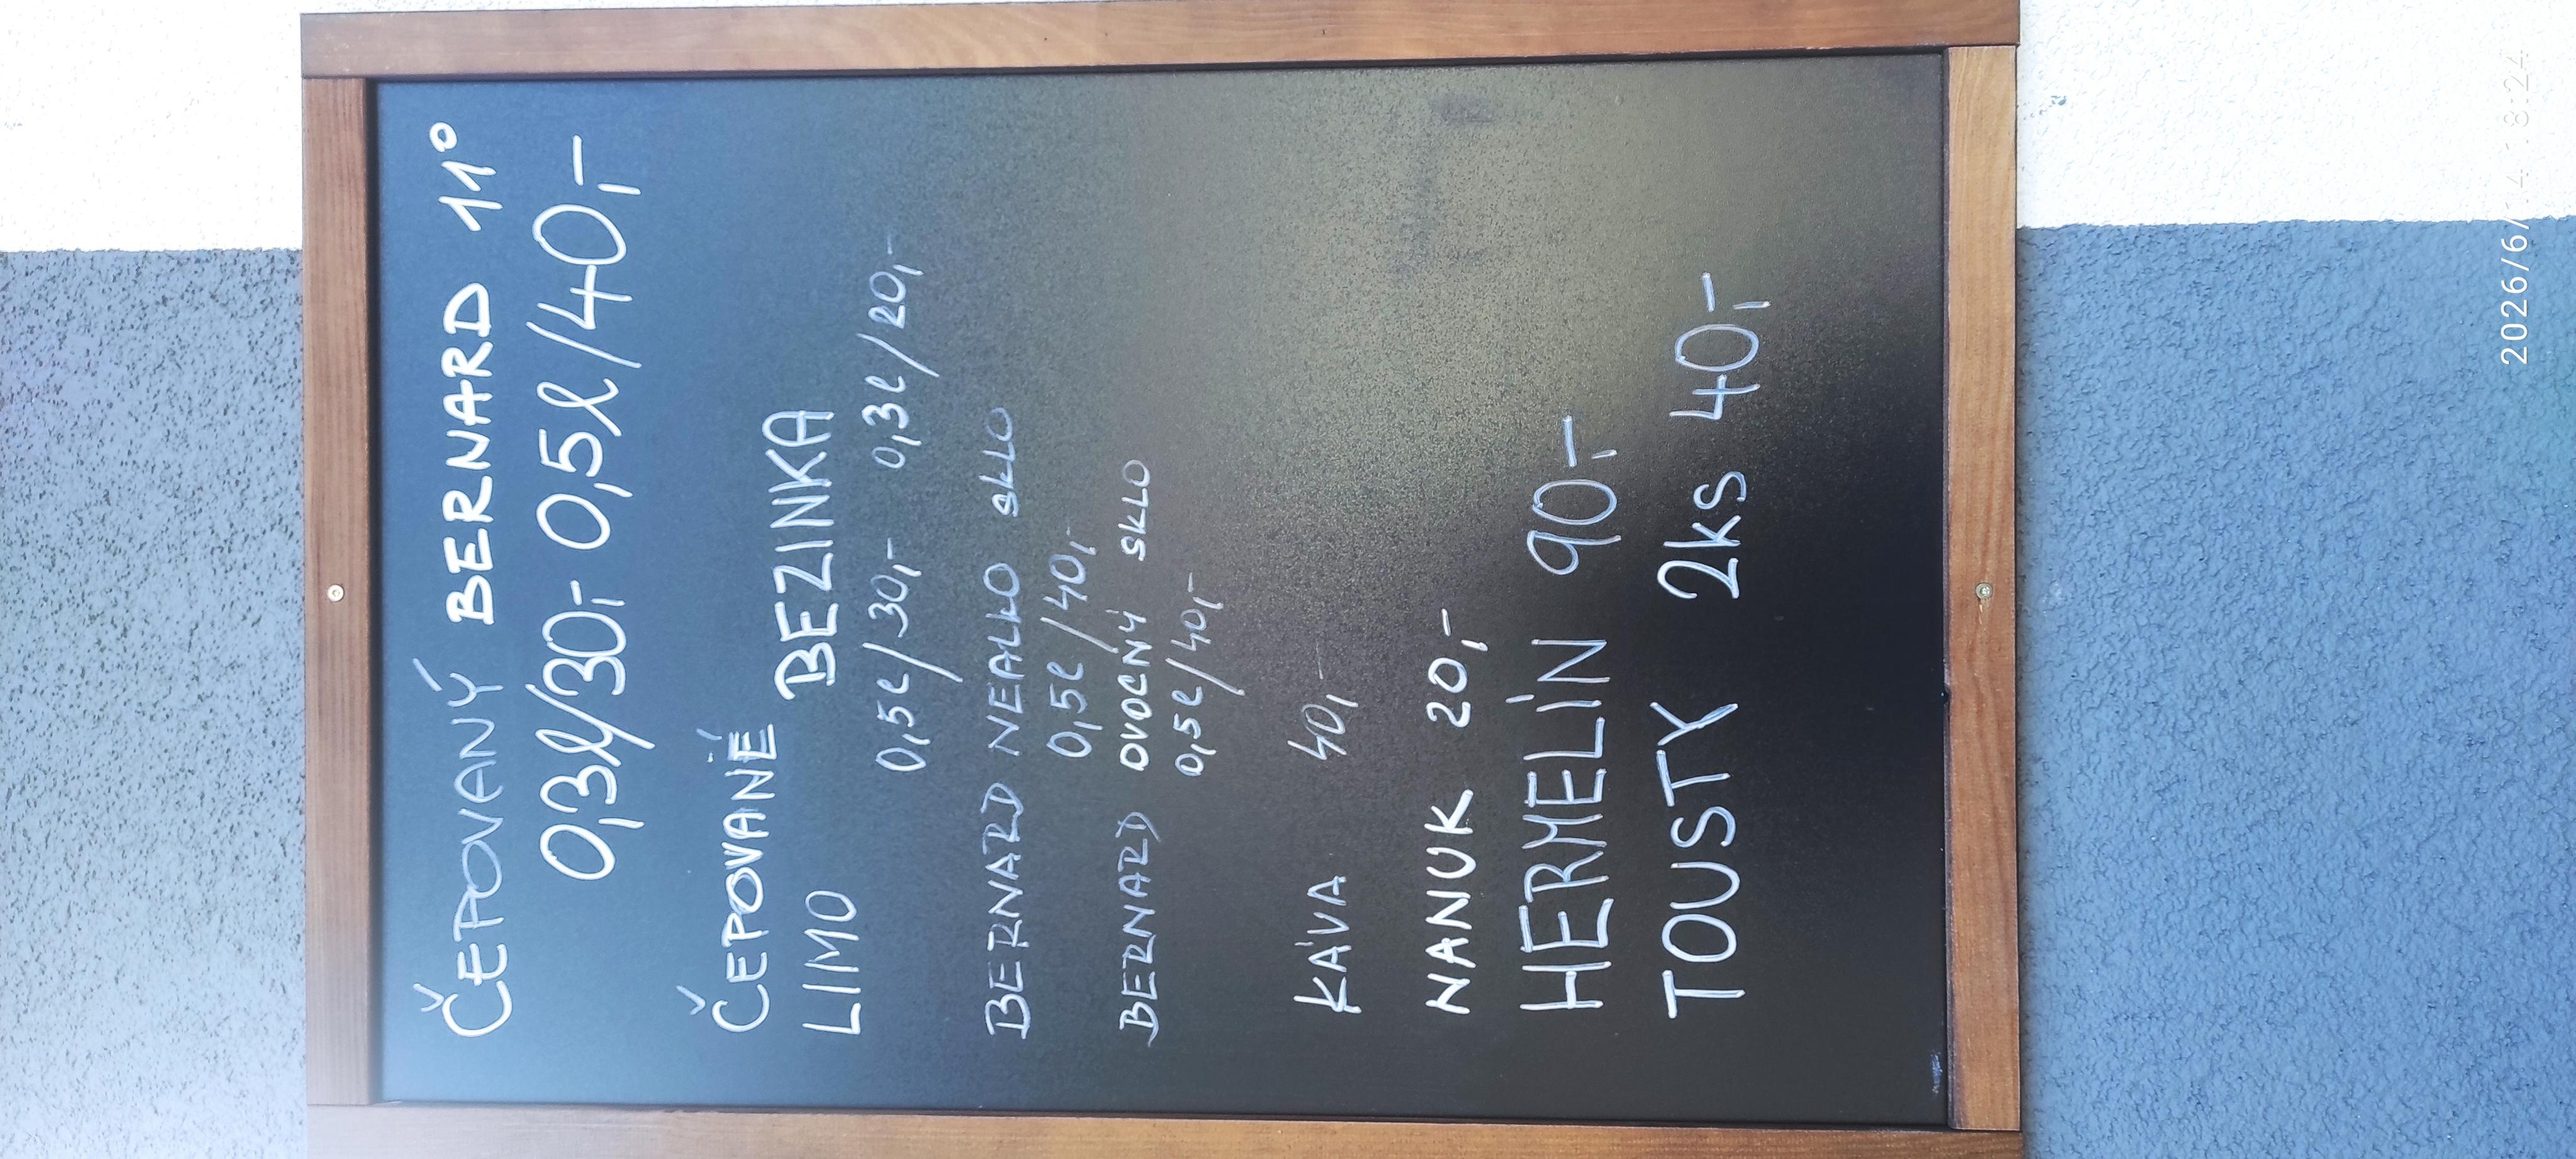 ČEPOVANÝ BERNARD 11°
0,3l/30,- 0,5l/40,-
ČEPOVANÉ
LIMO BEZINKA
0,5l/30,- 0,3l/20,-
BERNARD NEALKO SKLO
0,5l/40,-
BERNARD OVOCNÝ SKLO
0,5l/40,-
KÁVA 40,-
NANUK 20,-
HERMELÍN 90,-
TOUSTY 2ks 40,-